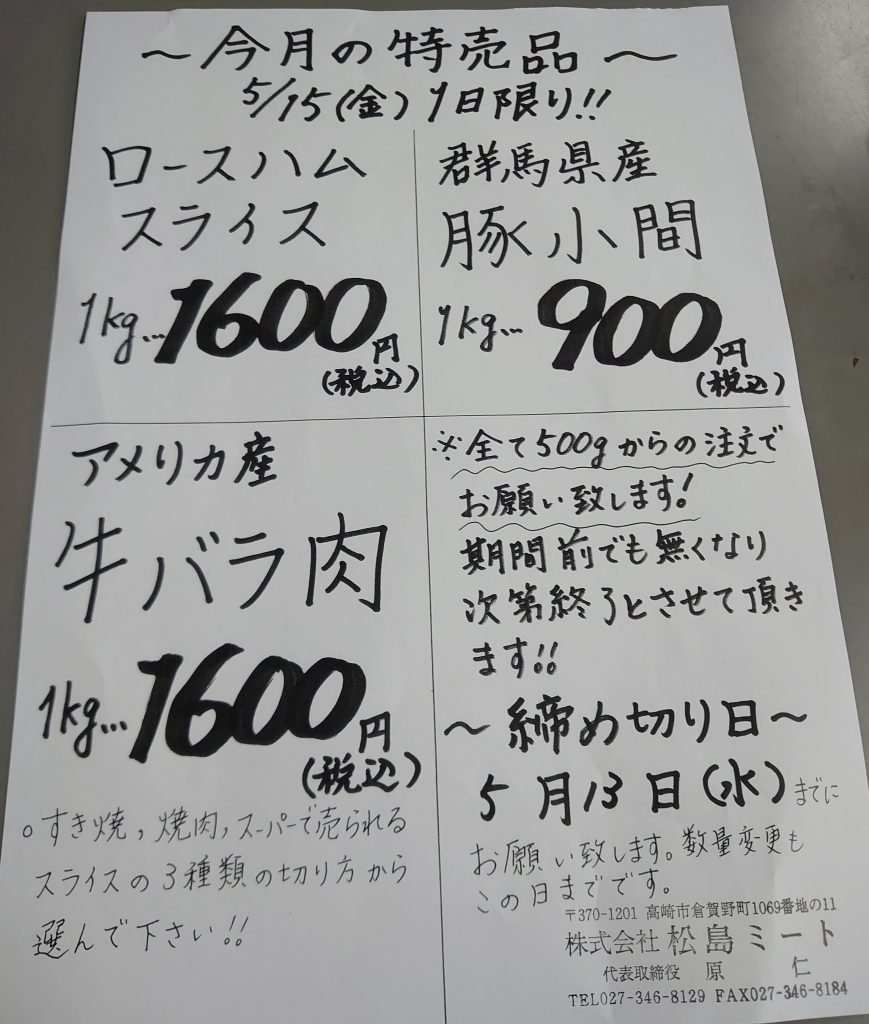 ～今月の特売品～
5/15(金) 1日限り!!
ロースハム
スライス
1kg…1600円
(税込)
群馬県産
豚小間
1kg…900円
(税込)
アメリカ産
牛バラ肉
1kg…1600円
(税込)
○すき焼，焼肉，スーパーで売られる
スライスの3種類の切り方から
選んで下さい!!
※全て500gからの注文で
お願い致します!
期間前でも無くなり
次第終了とさせて頂き
ます!!
～締め切り日～
5月13日(水)までに
お願い致します。数量変更も
この日までです。
〒370-1201 高崎市倉賀野町1069番地の11
株式会社 松島ミート
代表取締役 原 仁
TEL027-346-8129 FAX027-346-8184